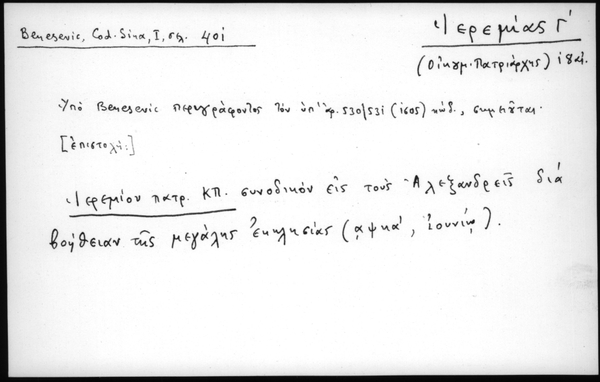 Benesevic, Cod. Sina, I, σελ. 401
Ἱερεμίας Γ΄
(Οἰκουμ. Πατριάρχης) 18 αἰ.
Ὑπό Benesevic περιγράφοντος τόν ὑπ' ἀρ. 530/531 (1605) κώδ., σημειοῦται.
[ἐπιστολή:]
Ἱερεμίου πατρ. ΚΠ. συνοδικόν εἰς τούς Ἀλεξανδρεῖς διά
βοήθειαν τῆς μεγάλης ἐκκλησίας (αψκα΄, Ἰουνίῳ).